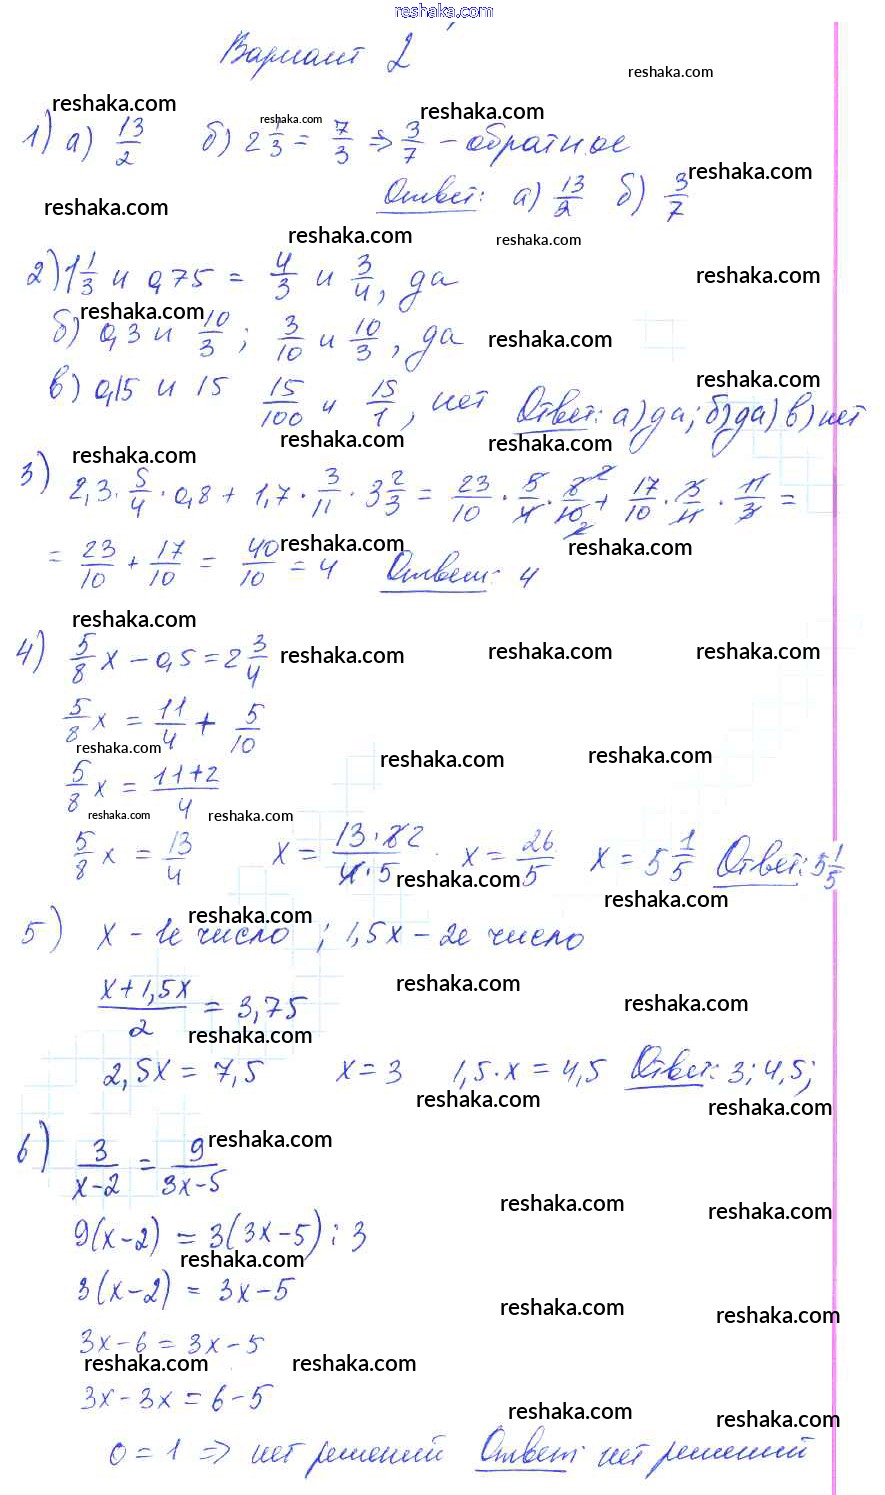 reshaka.com
Вариант 2
reshaka.com
reshaka.com reshaka.com reshaka.com
1) а) 13/2 б) 2 1/3 = 7/3 ⇒ 3/7 - обратное
reshaka.com
Ответ: а) 13/2 б) 3/7
reshaka.com
reshaka.com reshaka.com
2) 1 1/3 и 0,75 = 4/3 и 3/4, да
reshaka.com
reshaka.com
б) 0,3 и 10/3; 3/10 и 10/3, да
reshaka.com
reshaka.com
в) 0,15 и 15 15/100 и 15/1, нет Ответ: а) да; б) да) в) нет
reshaka.com reshaka.com
reshaka.com
3) 2,3 · 5/4 · 0,8 + 1,7 · 3/11 · 3 2/3 = 23/10 · 5/4 · 8 2/10 2 + 17/10 · 3/11 · 11/3 =
reshaka.com reshaka.com
= 23/10 + 17/10 = 40/10 = 4 Ответ: 4
reshaka.com
4) 5/8 x - 0,5 = 2 3/4
reshaka.com reshaka.com reshaka.com
5/8 x = 11/4 + 5/10
reshaka.com reshaka.com reshaka.com
5/8 x = 11+2/4
reshaka.com reshaka.com
5/8 x = 13/4 x = 13·82/4·5 x = 26/5 x = 5 1/5 Ответ: 5 1/5
reshaka.com reshaka.com
reshaka.com
5) x - 1е число ; 1,5x - 2е число
reshaka.com reshaka.com
x+1,5x/2 = 3,75
reshaka.com
2,5x = 7,5 x = 3 1,5·x = 4,5 Ответ: 3; 4,5;
reshaka.com reshaka.com
reshaka.com
6) 3/x-2 = 9/3x-5
reshaka.com reshaka.com
9(x-2) = 3(3x-5) : 3
reshaka.com
3(x-2) = 3x-5
reshaka.com reshaka.com
3x-6 = 3x-5
reshaka.com reshaka.com
3x-3x = 6-5
reshaka.com reshaka.com
0 = 1 ⇒ нет решений Ответ: нет решений